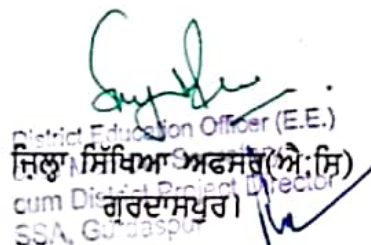 District Education Officer (E.E.)
ਜ਼ਿਲ੍ਹਾ ਸਿੱਖਿਆ ਅਫਸਰ(ਐ:ਸਿ)
cum District Project Director
ਗੁਰਦਾਸਪੁਰ।
SSA, Gurdaspur